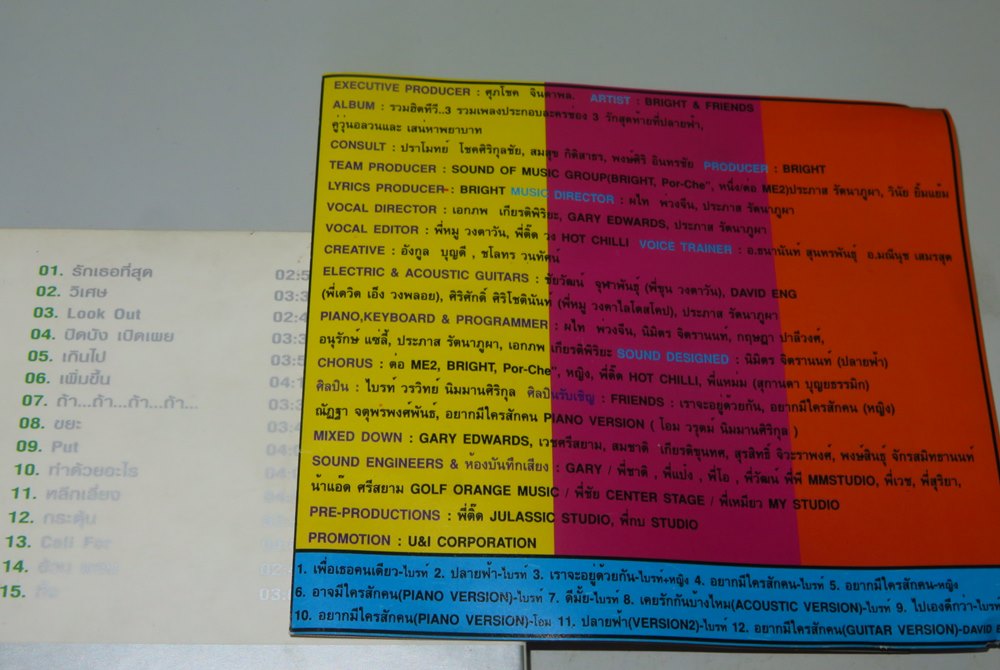 EXECUTIVE PRODUCER : ศุภโชค จินดาพล. ARTIST : BRIGHT & FRIENDS
ALBUM : รวมฮิตทีวี..3 รวมเพลงประกอบละครของ 3 รักสุดท้ายที่ปลายฟ้า,
คู่วุ่นอลวนและ เสน่หาพยาบาท
CONSULT : ปราโมทย์ โชคศิริกุลชัย, สมสุข กิติสาธร, พงษ์ศิริ อินทรชัย PRODUCER : BRIGHT
TEAM PRODUCER : SOUND OF MUSIC GROUP(BRIGHT, Por-Che", หนึ่ง/ต่อ ME2)ประภาส รัตนาภูผา, วินัย ยิ้มแย้ม
LYRICS PRODUCER : BRIGHT MUSIC DIRECTOR : ผไท พ่วงจีน, ประภาส รัตนาภูผา
VOCAL DIRECTOR : เอกภพ เกียรติพิริยะ, GARY EDWARDS, ประภาส รัตนาภูผา
VOCAL EDITOR : พี่หมู วงตาวัน, พี่ติ๊ด วง HOT CHILLI VOICE TRAINER : อ.ธนานันท์ สุนทรพันธุ์ อ.มณีนุช เสมรสุต
CREATIVE : อังกูล บุญดี , ชโลทร วนทัศน์
ELECTRIC & ACOUSTIC GUITARS : ชัยวัฒน์ จุฬาพันธุ์ (พี่ขุน วงตาวัน), DAVID ENG
(พี่เดวิด เอ็ง วงพลอย), ศิริศักดิ์ ศิริโชตินันท์ (พี่หมู วงคาไลโดสโคป), ประภาส รัตนาภูผา
PIANO,KEYBOARD & PROGRAMMER : ผไท พ่วงจีน, นิมิตร จิตรานนท์, กฤษฎา ปาลีวงศ์,
อนุรักษ์ แซ่ลี้, ประภาส รัตนาภูผา, เอกภพ เกียรติพิริยะ SOUND DESIGNED : นิมิตร จิตรานนท์ (ปลายฟ้า)
CHORUS : ต่อ ME2, BRIGHT, Por-Che", หญิง, พี่ติ๊ด HOT CHILLI, พี่แหม่ม (สุกานดา บุญยธรรมิก)
ศิลปิน : ไบรท์ วรวิทย์ นิมมานศิริกุล ศิลปินรับเชิญ : FRIENDS : เราจะอยู่ด้วยกัน, อยากมีใครสักคน (หญิง)
ณัฏฐา จตุพรพงศ์พันธ์, อยากมีใครสักคน PIANO VERSION ( โอม วรุตม์ นิมมานศิริกุล )
MIXED DOWN : GARY EDWARDS, เวชศรีสยาม, สมชาติ เกียรติขุนทศ, สุรสิทธิ์ จิวะราพงศ์, พงษ์สินธุ์ จักรสมิทธานนท์
SOUND ENGINEERS & ห้องบันทึกเสียง : GARY / พี่ชาติ , พี่แบ่ง , พี่โอ , พี่วัฒน์ พี่พี MMSTUDIO, พี่เวช, พี่สุริยา,
น้าแอ๊ด ศรีสยาม GOLF ORANGE MUSIC / พี่ชัย CENTER STAGE / พี่เหมียว MY STUDIO
PRE-PRODUCTIONS : พี่ติ๊ด JULASSIC STUDIO, พี่กบ STUDIO
PROMOTION : U&I CORPORATION
1. เพื่อเธอคนเดียว-ไบรท์ 2. ปลายฟ้า-ไบรท์ 3. เราจะอยู่ด้วยกัน-ไบรท์+หญิง 4. อยากมีใครสักคน-ไบรท์ 5. อยากมีใครสักคน-หญิง
6. อาจมีใครสักคน(PIANO VERSION)-ไบรท์ 7. ดีมั้ย-ไบรท์ 8. เคยรักกันบ้างไหม(ACOUSTIC VERSION)-ไบรท์ 9. ไปเองดีกว่า-ไบรท์
10. อยากมีใครสักคน(PIANO VERSION)-โอม 11. ปลายฟ้า(VERSION2)-ไบรท์ 12. อยากมีใครสักคน(GUITAR VERSION)-DAVID
01. รักเธอที่สุด 02:5
02. วิเศษ 03:3
03. Look Out 02:4
04. ปิดบัง เปิดเผย 03:3
05. เกินไป 03:5
06. เพิ่มขึ้น 04:1
07. ถ้า...ถ้า...ถ้า...ถ้า... 03:3
08. ขยะ 03:4
09. Put 04:0
10. ทำด้วยอะไร 04:0
11. หลีกเลี่ยง
12. กระตุ้น
13. Call For
14.
15. 03:0